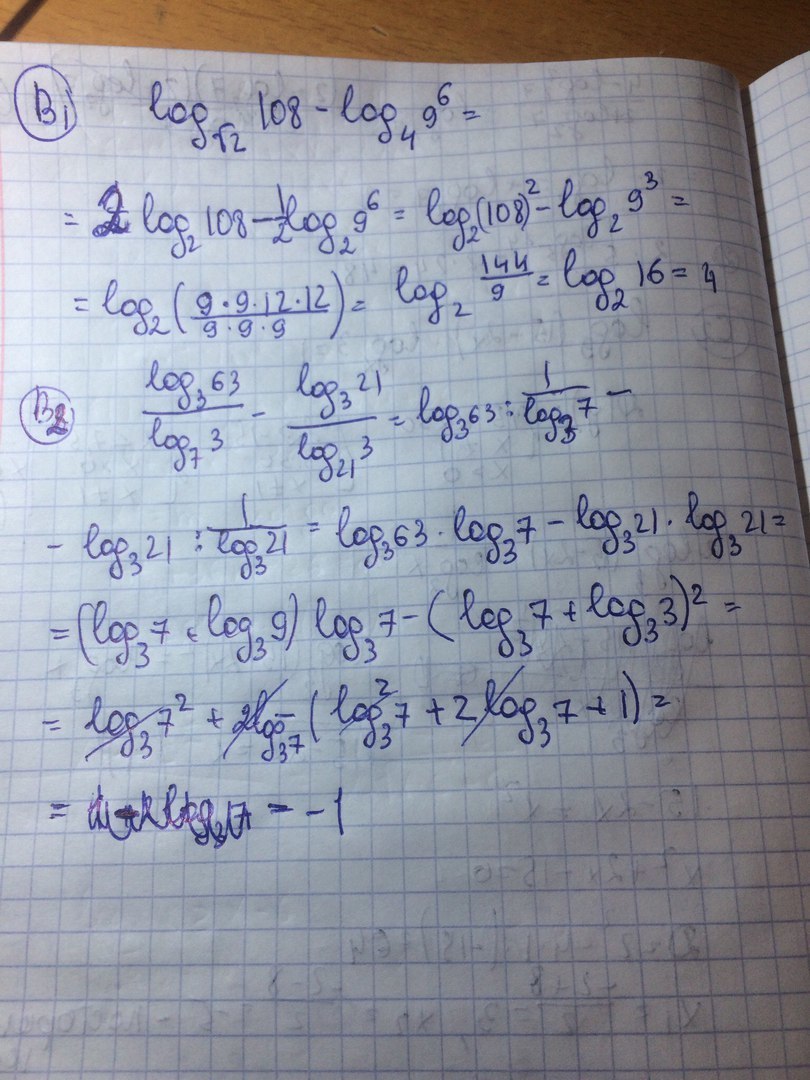 B1 log_√2 108 - log_4 9^6 =
= 2 log_2 108 - 1/2 log_2 9^6 = log_2 (108)^2 - log_2 9^3 =
= log_2 (9·9·12·12 / 9·9·9) = log_2 144/9 = log_2 16 = 4
B2 log_3 63 / log_7 3 - log_3 21 / log_21 3 = log_3 63 : 1/log_3 7 -
- log_3 21 : 1/log_3 21 = log_3 63 · log_3 7 - log_3 21 · log_3 21 =
= (log_3 7 + log_3 9) log_3 7 - (log_3 7 + log_3 3)^2 =
= log_3 7^2 + 2log_3 7 - (log_3^2 7 + 2 log_3 7 + 1) =
= = -1